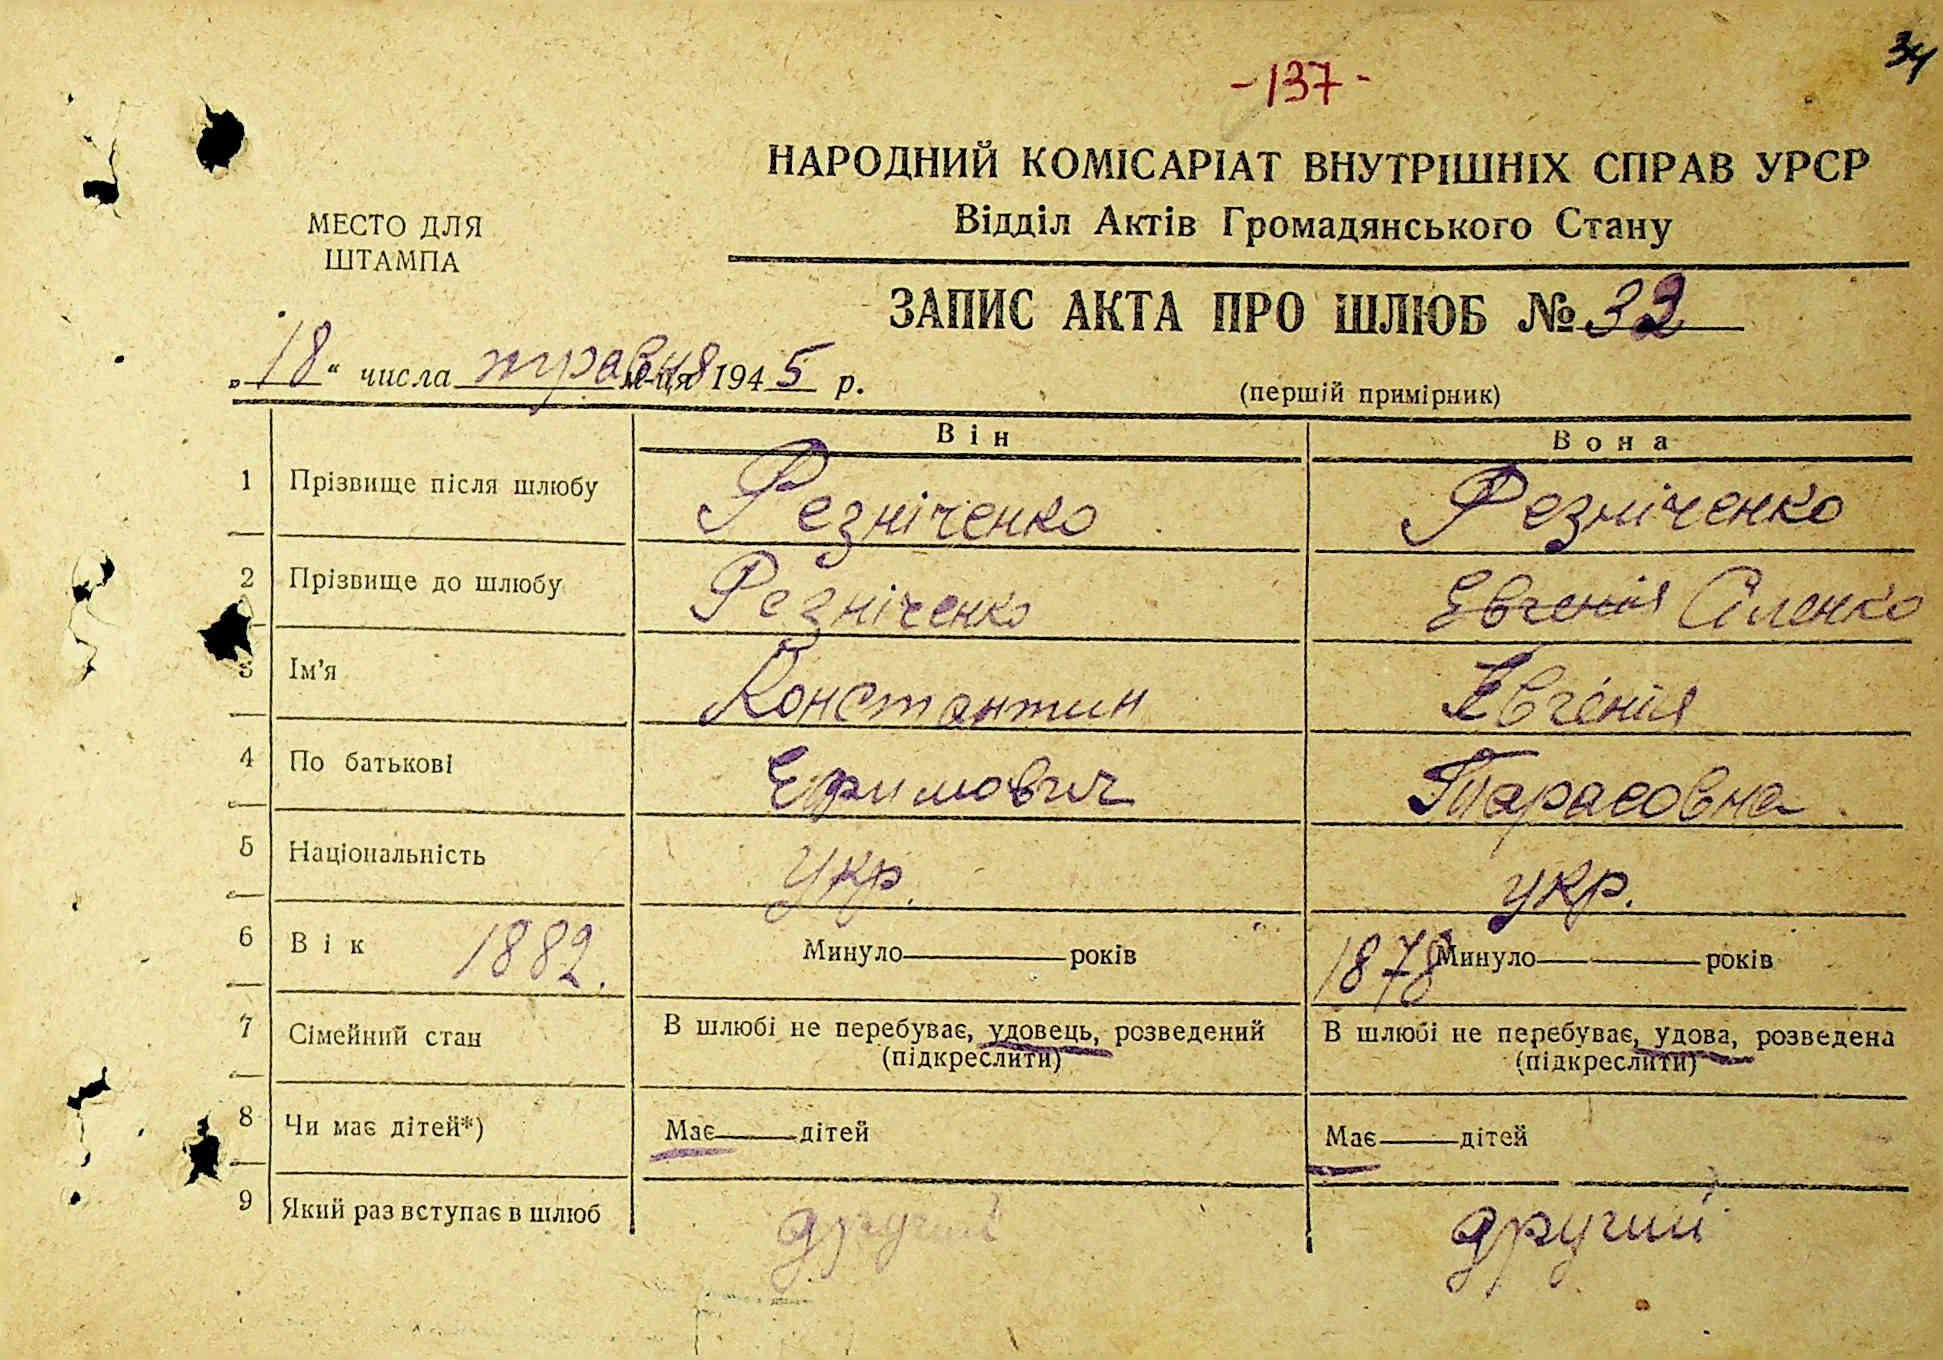 -137-
34
НАРОДНИЙ КОМІСАРІАТ ВНУТРІШНІХ СПРАВ УРСР
Відділ Актів Громадянського Стану
МЕСТО ДЛЯ
ШТАМПА
ЗАПИС АКТА ПРО ШЛЮБ № 32
„18“ числа травня м-ця 1945 р.
(першій примірник)
Він Вона
1 Прізвище після шлюбу Резніченко Резніченко
2 Прізвище до шлюбу Резніченко Евгенія Сіленко
3 Ім'я Константин Евгенія
4 По батькові Ефимович Тарасовна
5 Національність укр. укр.
6 Вік 1882. Минуло — років 1878 Минуло — років
7 Сімейний стан В шлюбі не перебуває, удовець, розведений В шлюбі не перебуває, удова, розведена
(підкреслити) (підкреслити)
8 Чи має дітей*) Має — дітей Має — дітей
9 Який раз вступає в шлюб другий другий